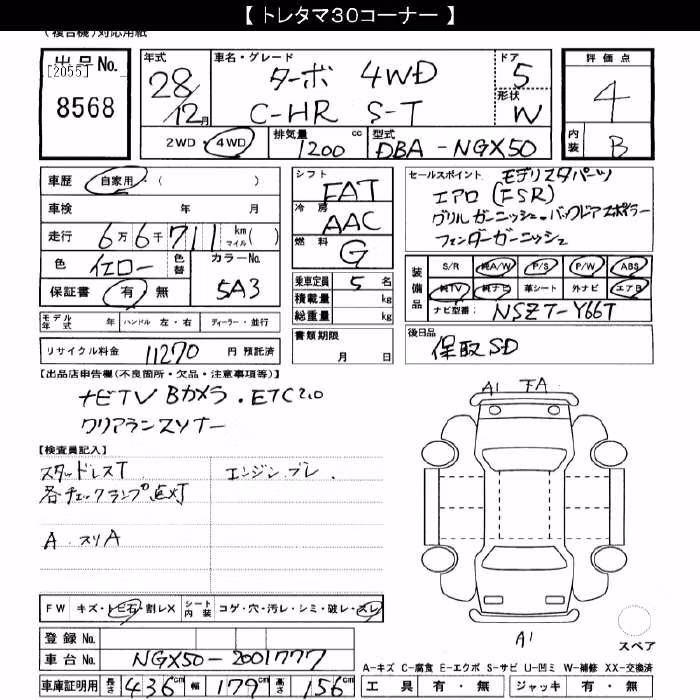 【 トレタマ30コーナー 】
(複合機)対応用紙
出品No.
[2055]
8568
年式
28/12月
車名・グレード
ターボ 4WD
C-HR S-T
ドア
5
形状
W
評価点
4
内装
B
2WD・4WD
排気量
1200 cc
型式
DBA-NGX50
車歴 自家用・( )
車検 年 月
走行 6万6千711 km マイル( )
色 イエロー 色替 カラーNo. 5A3
保証書 有・無
モデル年式 年 ハンドル 左・右 ディーラー・並行
リサイクル料金 11270 円 預託済
シフト
FAT
冷房
AAC
燃料
G
乗車定員 5 名
積載量 kg
総重量 kg
書類期限
月 日
セールスポイント モデリスタパーツ
エアロ(FSR)
グリルガーニッシュ・バックドアスポイラー
フェンダーガーニッシュ
装備品
S/R 純A/W P/S P/W ABS
純TV 純ナビ 革シート 外ナビ エアB
ナビ型番 NSZT-Y66T
後日品
保取SD
【出品店申告欄(不良箇所・欠品・注意事項等)】
ナビTV Bカメラ・ETC2.0
クリアランスソナー
【検査員記入】
スタッドレスT
エンジンブレ.
各チェックランプ
A・スリA
FW キズ・トビ石・割レX シート内装 コゲ・穴・汚レ・シミ・破レ・スレ
登録No.
車台No. NGX50-2001777
車庫証明用 長さ 436cm 幅 179cm 高さ 156cm
A1 下A
A1
スペア
A-キズ C-腐食 E-エクボ S-サビ U-凹ミ W-補修 XX-交換済
工具 有・無 ジャッキ 有・無